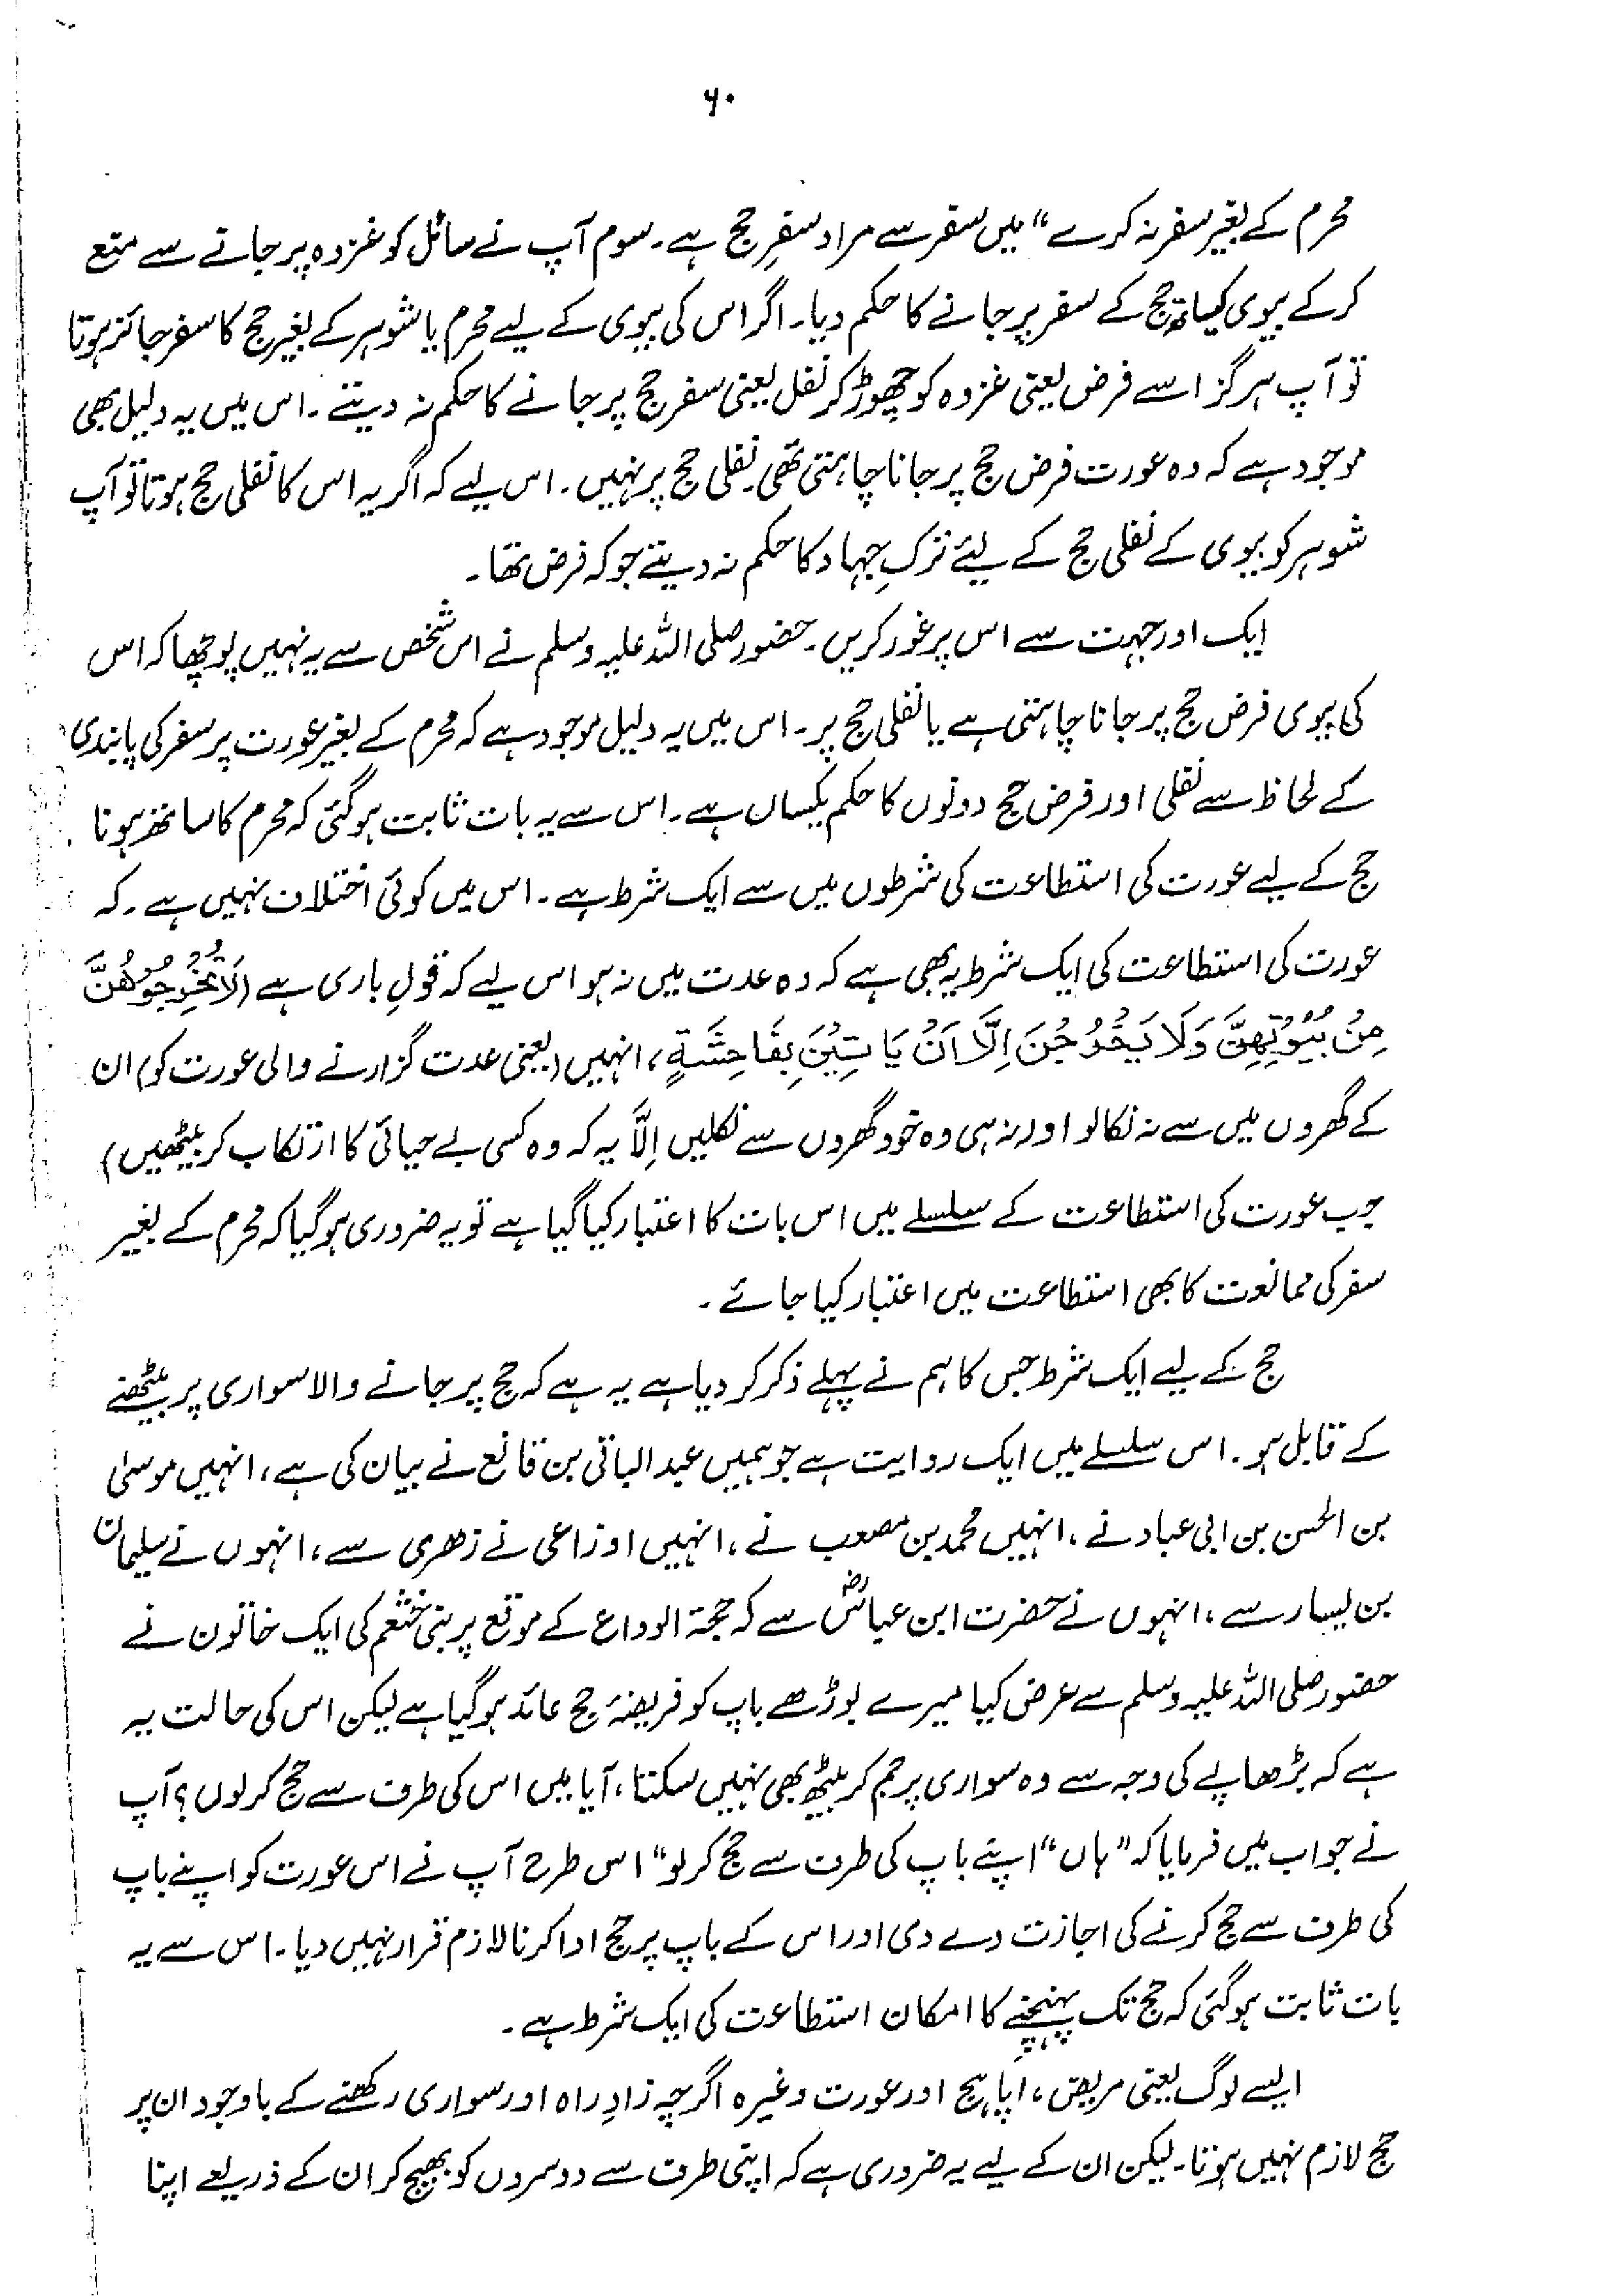 ۶۰
محرم کے بغیر سفر نہ کرے“ میں سفر سے مراد سفرِ حج ہے۔ سوم آپ نے سائل کو غزوہ پر جانے سے منع
کر کے بیوی کیساتھ حج کے سفر پر جانے کا حکم دیا۔ اگر اس کی بیوی کے لیے محرم یا شوہر کے بغیر حج کا سفر جائز ہوتا
تو آپ ہرگز اسے فرض یعنی غزوہ کو چھوڑ کر نفل یعنی سفر حج پر جانے کا حکم نہ دیتے۔ اس میں یہ دلیل بھی
موجود ہے کہ وہ عورت فرض حج پر جانا چاہتی تھی۔ نفلی حج پر نہیں۔ اس لیے کہ اگر یہ اس کا نفلی حج ہوتا تو آپ
شوہر کو بیوی کے نفلی حج کے لیئے ترکِ جہاد کا حکم نہ دیتے جو کہ فرض تھا۔
ایک اور جہت سے اس پر غور کریں۔ حضور صلی اللہ علیہ وسلم نے اس شخص سے یہ نہیں پوچھا کہ اس
کی بیوی فرض حج پر جانا چاہتی ہے یا نفلی حج پر۔ اس میں یہ دلیل موجود ہے کہ محرم کے بغیر عورت پر سفر کی پابندی
کے لحاظ سے نفلی اور فرض حج دونوں کا حکم یکساں ہے۔ اس سے یہ بات ثابت ہو گئی کہ محرم کا ساتھ ہونا
حج کے لیے عورت کی استطاعت کی شرطوں میں سے ایک شرط ہے۔ اس میں کوئی اختلاف نہیں ہے۔ کہ
عورت کی استطاعت کی ایک شرط یہ بھی ہے کہ وہ عدت میں نہ ہو اس لیے کہ قولِ باری ہے (لَا تُخْرِجُوْهُنَّ
مِنْ بُيُوْتِهِنَّ وَلَا يَخْرُجْنَ اِلَّا اَنْ يَاتِيْنَ بِفَاحِشَةٍ، انہیں (یعنی عدت گزارنے والی عورت کو) ان
کے گھروں میں سے نہ نکالو اور نہ ہی وہ خود گھروں سے نکلیں اِلَّا یہ کہ وہ کسی بے حیائی کا ارتکاب کر بیٹھیں)
جب عورت کی استطاعت کے سلسلے میں اس بات کا اعتبار کیا گیا ہے تو یہ ضروری ہو گیا کہ محرم کے بغیر
سفر کی ممانعت کا بھی استطاعت میں اعتبار کیا جائے۔
حج کے لیے ایک شرط جس کا ہم نے پہلے ذکر کر دیا ہے یہ ہے کہ حج پر جانے والا سواری پر بیٹھنے
کے قابل ہو۔ اس سلسلے میں ایک روایت ہے جو ہمیں عبد الباقی بن قانع نے بیان کی ہے، انہیں موسیٰ
بن الحسن بن ابی عباد نے، انہیں محمد بن مصعب نے، انہیں اوزاعی نے زھری سے، انہوں نے سلیمان
بن یسار سے، انہوں نے حضرت ابن عباسؓ سے کہ حجۃ الوداع کے موقع پر بنی خثعم کی ایک خاتون نے
حضور صلی اللہ علیہ وسلم سے عرض کیا میرے بوڑھے باپ کو فریضۂ حج عائد ہو گیا ہے لیکن اس کی حالت یہ
ہے کہ بڑھاپے کی وجہ سے وہ سواری پر جم کر بیٹھ بھی نہیں سکتا، آیا میں اس کی طرف سے حج کر لوں؟ آپ
نے جواب میں فرمایا کہ ”ہاں“ اپنے باپ کی طرف سے حج کر لو“ اس طرح آپ نے اس عورت کو اپنے باپ
کی طرف سے حج کرنے کی اجازت دے دی اور اس کے باپ پر حج ادا کرنا لازم قرار نہیں دیا۔ اس سے یہ
بات ثابت ہو گئی کہ حج تک پہنچنے کا امکان استطاعت کی ایک شرط ہے۔
ایسے لوگ یعنی مریض، اپاہج اور عورت وغیرہ اگرچہ زادِ راہ اور سواری رکھنے کے باوجود ان پر
حج لازم نہیں ہوتا۔ لیکن ان کے لیے یہ ضروری ہے کہ اپنی طرف سے دوسروں کو بھیج کر ان کے ذریعے اپنا